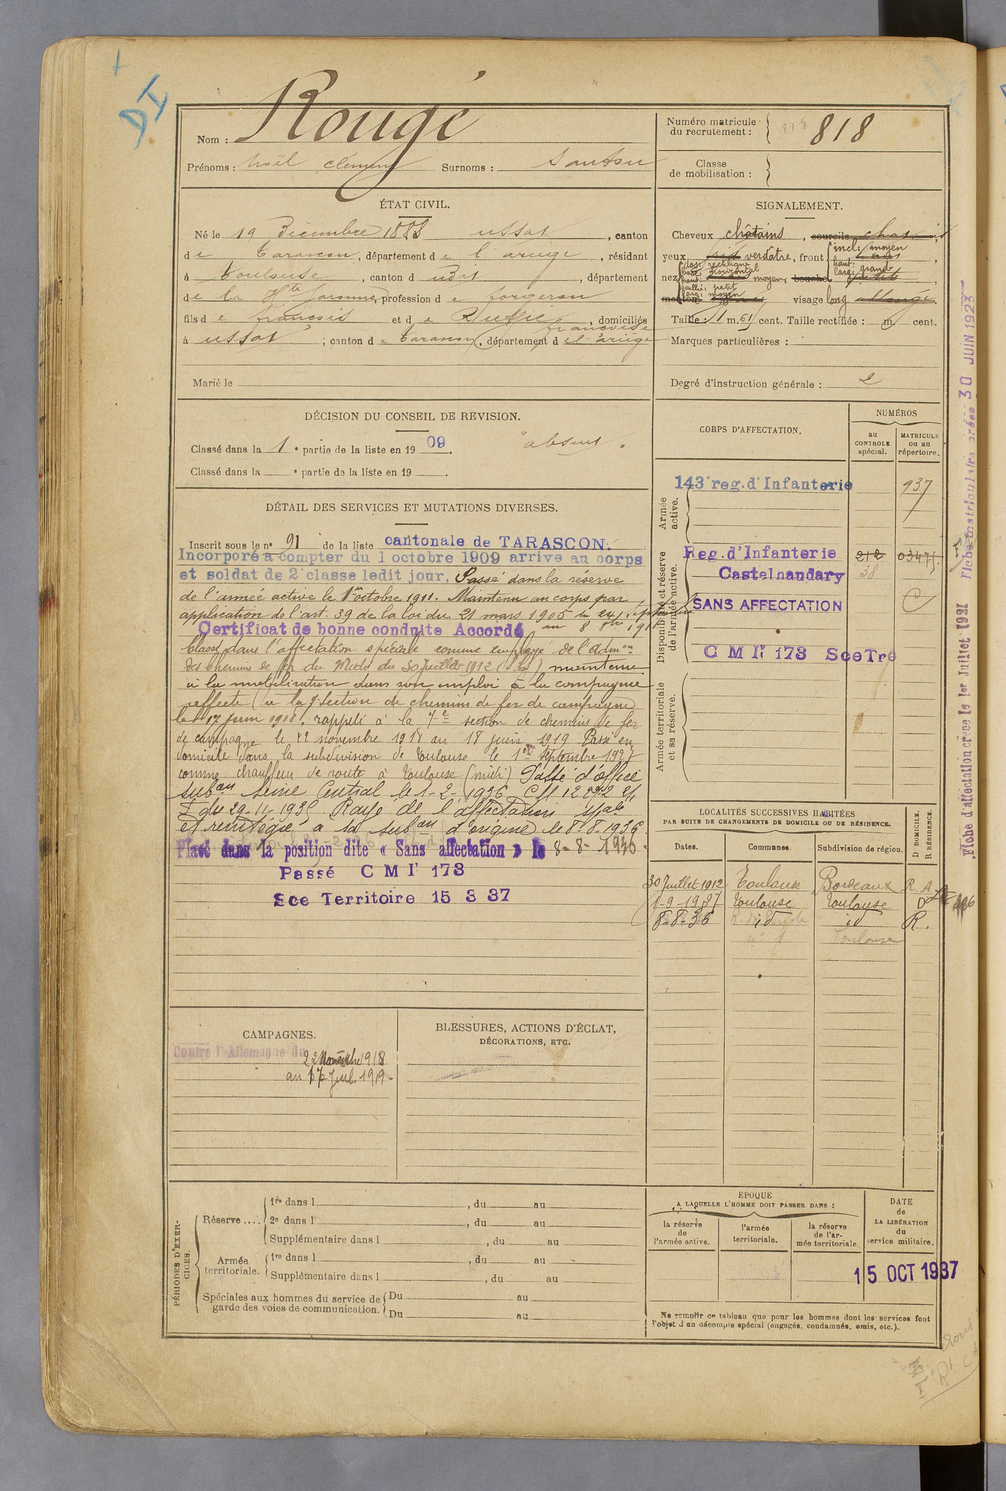 DI
Nom : Rougé
Prénoms : Noël Clément Surnoms :
Numéro matricule du recrutement : 818
Classe de mobilisation :
ÉTAT CIVIL.
Né le 19 Décembre 1888 ussat, canton
de Tarascon, département de l'ariège, résidant
à Toulouse, canton d, département
de la Hte Garonne, profession de forgeron
fils de françois et de françoise, domiciliés
à ussat ; canton de Tarascon, département de l'ariège
Marié le
SIGNALEMENT.
Cheveux châtains, sourcils
yeux verdâtre, front incl: moyen
haut:
larg: grand
nez moyen, bouche
menton visage long
Taille : 1 m. 61 cent. Taille rectifiée : m. cent.
Marques particulières :
Degré d'instruction générale : 2
DÉCISION DU CONSEIL DE REVISION.
Classé dans la 1e partie de la liste en 1909. absent.
Classé dans la e partie de la liste en 19 .
DÉTAIL DES SERVICES ET MUTATIONS DIVERSES.
Inscrit sous le n° 91 de la liste cantonale de TARASCON.
Incorporé à compter du 1 octobre 1909 arrive au corps
et soldat de 2e classe ledit jour. Passé dans la réserve
de l'armée active le 1er octobre 1911. Maintenu au corps par
application de l'art. 39 de la loi du 21 mars 1905
Certificat de bonne conduite Accordé
Classé dans l'affectation spéciale comme employé de l'Admon
des chemins de fer du Midi du 30 Juillet 1912 maintenu
à la mobilisation dans son emploi à la compagnie
affecté à la 7e section de chemins de fer de campagne
le 17 juin 1918. rappelé à la 7e section de chemins de fer
de campagne le 22 novembre 1918 au 18 juin 1919 Passé en
domicile dans la subdivision de Toulouse le 1er septembre 1927
comme chauffeur de route à Toulouse (midi) Passé d'office
subon Seine Central le 1-2-1936
du 29-11-1935 Rayé de l'affectation spéale
et réintégré à la subon d'origine le 8.8.1936
Placé dans la position dite « Sans affectation » le 8-8-1936.
Passé C M Ie 173
Sce Territoire 15 3 37
CORPS D'AFFECTATION.
NUMÉROS
au CONTROLE spécial.
MATRICULE ou au répertoire.
Armée active.
143e reg. d'Infanterie 937
Disponibilité et réserve de l'armée active.
Reg. d'Infanterie 212
Castelnaudary 38
SANS AFFECTATION
C M Ie 173 Sce Tre
Armée territoriale et sa réserve.
LOCALITÉS SUCCESSIVES HABITÉES
PAR SUITE DE CHANGEMENTS DE DOMICILE OU DE RÉSIDENCE.
Dates. Communes. Subdivision de région. D DOMICILE. R RÉSIDENCE.
30 Juillet 1912 Toulouse Bordeaux R.
1-9-1927 Toulouse Toulouse D
8-8-36 id id R.
Toulouse
CAMPAGNES.
Contre l'Allemagne du 22 Novembre 1918
au 17 Juil. 1919.
BLESSURES, ACTIONS D'ÉCLAT,
DÉCORATIONS, ETC.
PÉRIODES D'EXERCICES.
Réserve ....
1re dans l , du au
2e dans l , du au
Supplémentaire dans l , du au
Armée territoriale.
1re dans l , du au
Supplémentaire dans l , du au
Spéciales aux hommes du service de garde des voies de communication.
Du au
Du au
ÉPOQUE
A LAQUELLE L'HOMME DOIT PASSER DANS :
la réserve de l'armée active.
l'armée territoriale.
la réserve de l'armée territoriale.
DATE de LA LIBÉRATION du service militaire.
15 OCT 1937
Ne remplir ce tableau que pour les hommes dont les services font
l'objet d'un décompte spécial (engagés, condamnés, omis, etc.).
Fiche d'affectation créée le 1er Juillet 1921
Fiche matriculaire créée 30 JUIN 1923